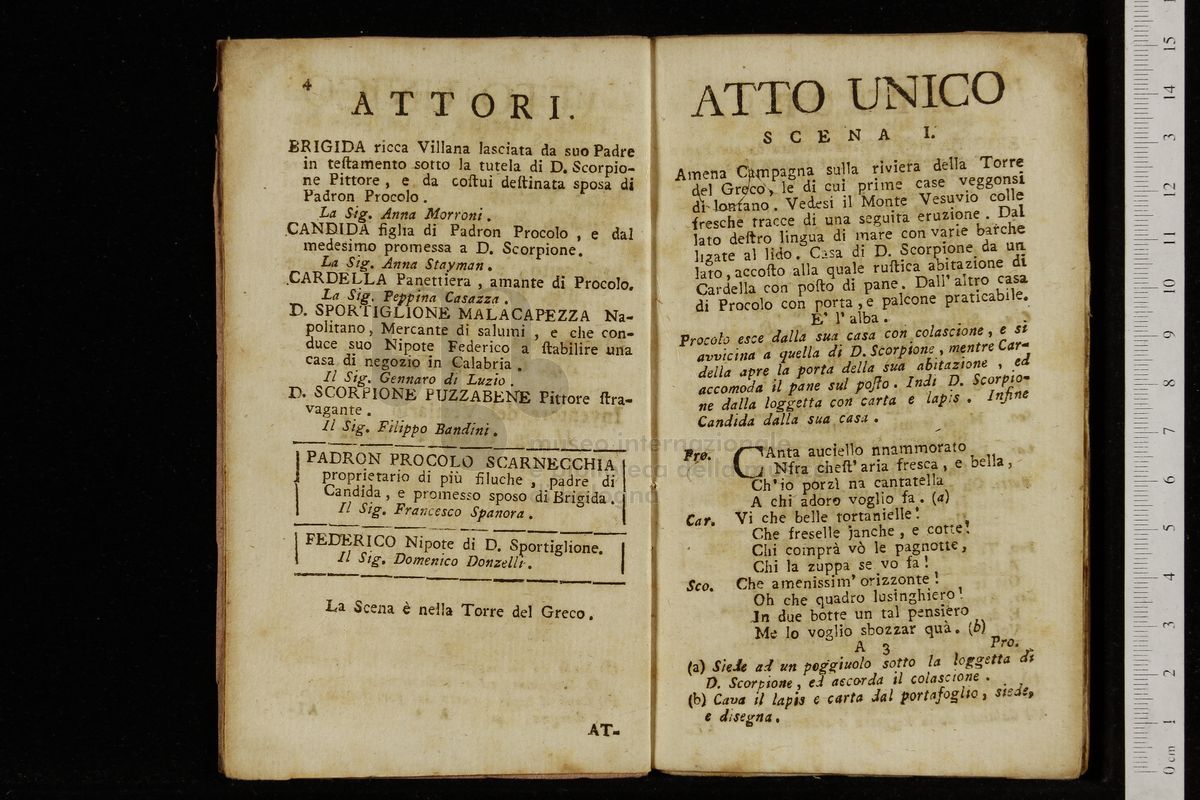 4
ATTORI.
BRIGIDA ricca Villana lasciata da suo Padre
in teſtamento sotto la tutela di D. Scorpio-
ne Pittore, e da coſtui deſtinata sposa di
Padron Procolo.
La Sig. Anna Morroni.
CANDIDA figlia di Padron Procolo, e dal
medesimo promessa a D. Scorpione.
La Sig. Anna Stayman.
CARDELLA Panettiera, amante di Procolo.
La Sig. Peppina Casazza.
D. SPORTIGLIONE MALACAPEZZA Na-
politano, Mercante di salumi, e che con-
duce suo Nipote Federico a ſtabilire una
casa di negozio in Calabria.
Il Sig. Gennaro di Luzio.
D. SCORPIONE PUZZABENE Pittore ſtra-
vagante.
Il Sig. Filippo Bandini.
PADRON PROCOLO SCARNECCHIA
proprietario di più filuche, padre di
Candida, e promesso sposo di Brigida.
Il Sig. Francesco Spanora.
FEDERICO Nipote di D. Sportiglione.
Il Sig. Domenico Donzelli.
La Scena è nella Torre del Greco.
AT-
ATTO UNICO
SCENA I.
Amena Campagna sulla riviera della Torre
del Greco, le di cui prime case veggonsi
di lontano. Vedesi il Monte Vesuvio colle
fresche tracce di una seguita eruzione. Dal
lato deſtro lingua di mare con varie barche
ligate al lido. Casa di D. Scorpione da un
lato, accoſto alla quale ruſtica abitazione di
Cardella con poſto di pane. Dall' altro casa
di Procolo con porta, e palcone praticabile.
E' l' alba.
Procolo esce dalla sua casa con colascione, e si
avvicina a quella di D. Scorpione, mentre Car-
della apre la porta della sua abitazione, ed
accomoda il pane sul poſto. Indi D. Scorpio-
ne dalla loggetta con carta e lapis. Infine
Candida dalla sua casa.
Pro. CAnta auciello nnammorato
Nfra cheſt' aria fresca, e bella,
Ch' io porzì na cantatella
A chi adoro voglio fa. (a)
Car. Vi che belle tortanielle!
Che freselle janche, e cotte!
Chi comprà vò le pagnotte,
Chi la zuppa se vo fa!
Sco. Che amenissim' orizzonte!
Oh che quadro lusinghiero!
In due botte un tal pensiero
Me lo voglio sbozzar quà. (b)
A 3 Pro.
(a) Siede ad un poggiuolo sotto la loggetta di
D. Scorpione, ed accorda il colascione.
(b) Cava il lapis e carta dal portafoglio, siede,
e disegna.
museo internazionale
e biblioteca della musica
0 cm 1 2 3 4 5 6 7 8 9 10 11 12 13 14 15